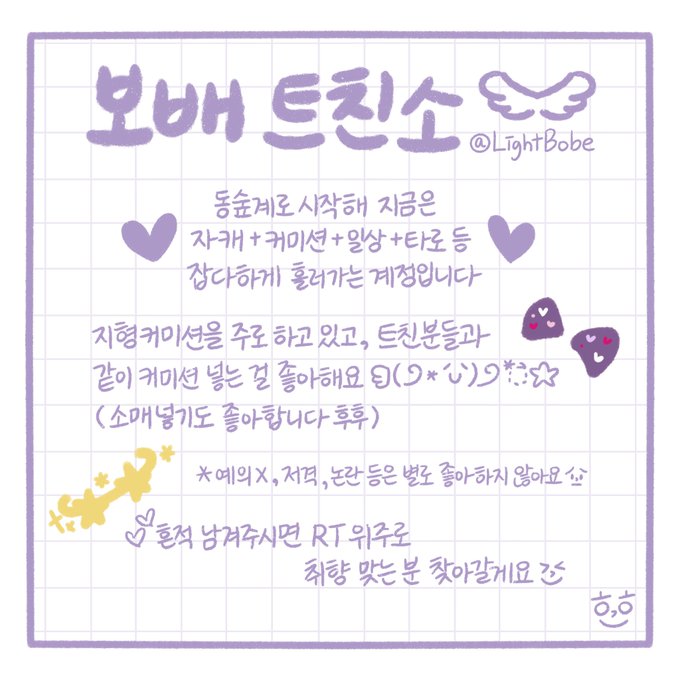 보배 트친소
@LightBobe
동숲계로 시작해 지금은
자캐+커미션+일상+타로 등
잡다하게 흘러가는 계정입니다
지형커미션을 주로 하고 있고, 트친분들과
같이 커미션 넣는 걸 좋아해요 ଡ(੭*ˊᵕˋ)੭*ઃ☆
(소매넣기도 좋아합니다 후후)
*예의X, 저격, 논란 등은 별로 좋아하지 않아요
흔적 남겨주시면 RT 위주로
취향 맞는 분 찾아갈게요
ㅎ,ㅎ